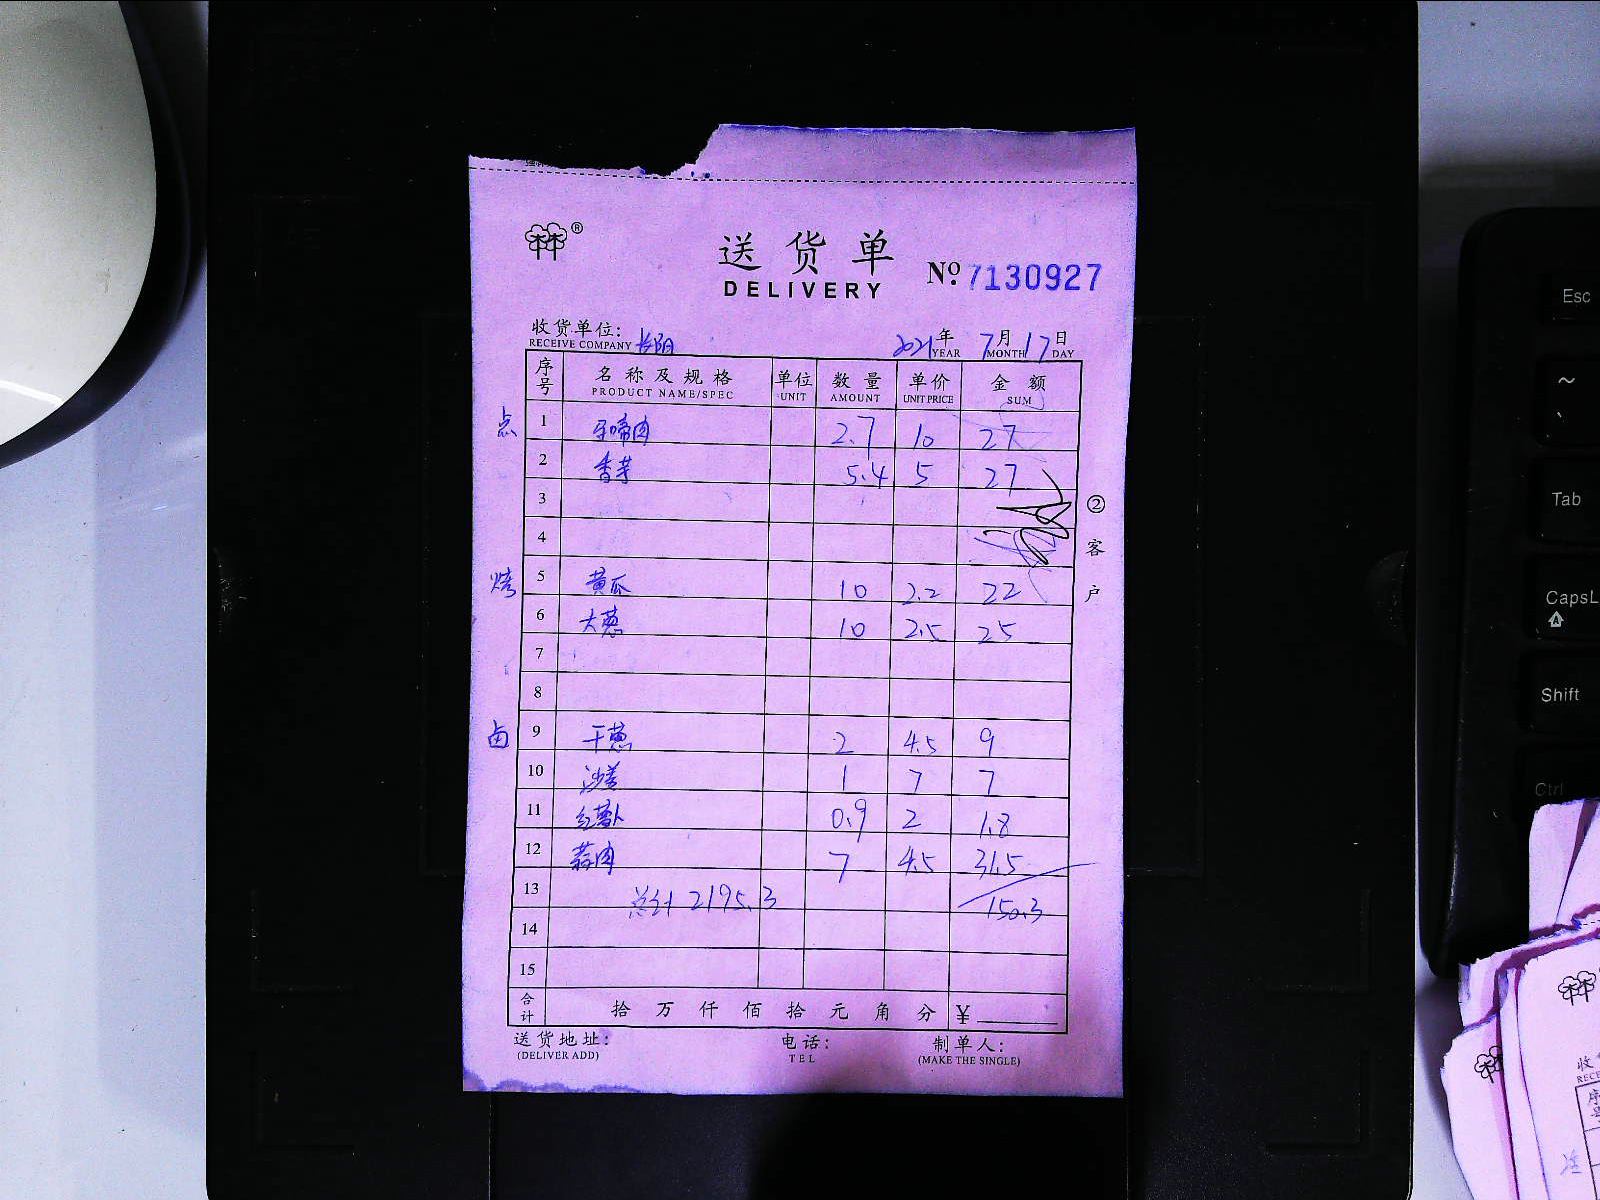 送货单
DELIVERY
No. 7130927
收货单位: 长阳
RECEIVE COMPANY
2021年 7月 17日
YEAR MONTH DAY
序号 名称及规格 单位 数量 单价 金额
PRODUCT NAME/SPEC UNIT AMOUNT UNIT PRICE SUM
点 1 马啼肉 2.7 10 27
2 香芋 5.4 5 27
3
4
烤 5 黄瓜 10 2.2 22
6 大葱 10 2.5 25
7
8
卤 9 干葱 2 4.5 9
10 沙姜 1 7 7
11 红萝卜 0.9 2 1.8
12 蒜肉 7 4.5 31.5
13 总计 2195.3 150.3
14
15
合计 拾 万 仟 佰 拾 元 角 分 ¥
② 客户
送货地址: 电话: 制单人:
(DELIVER ADD) TEL (MAKE THE SINGLE)
Esc
~
Tab
CapsL
Shift
Ctrl